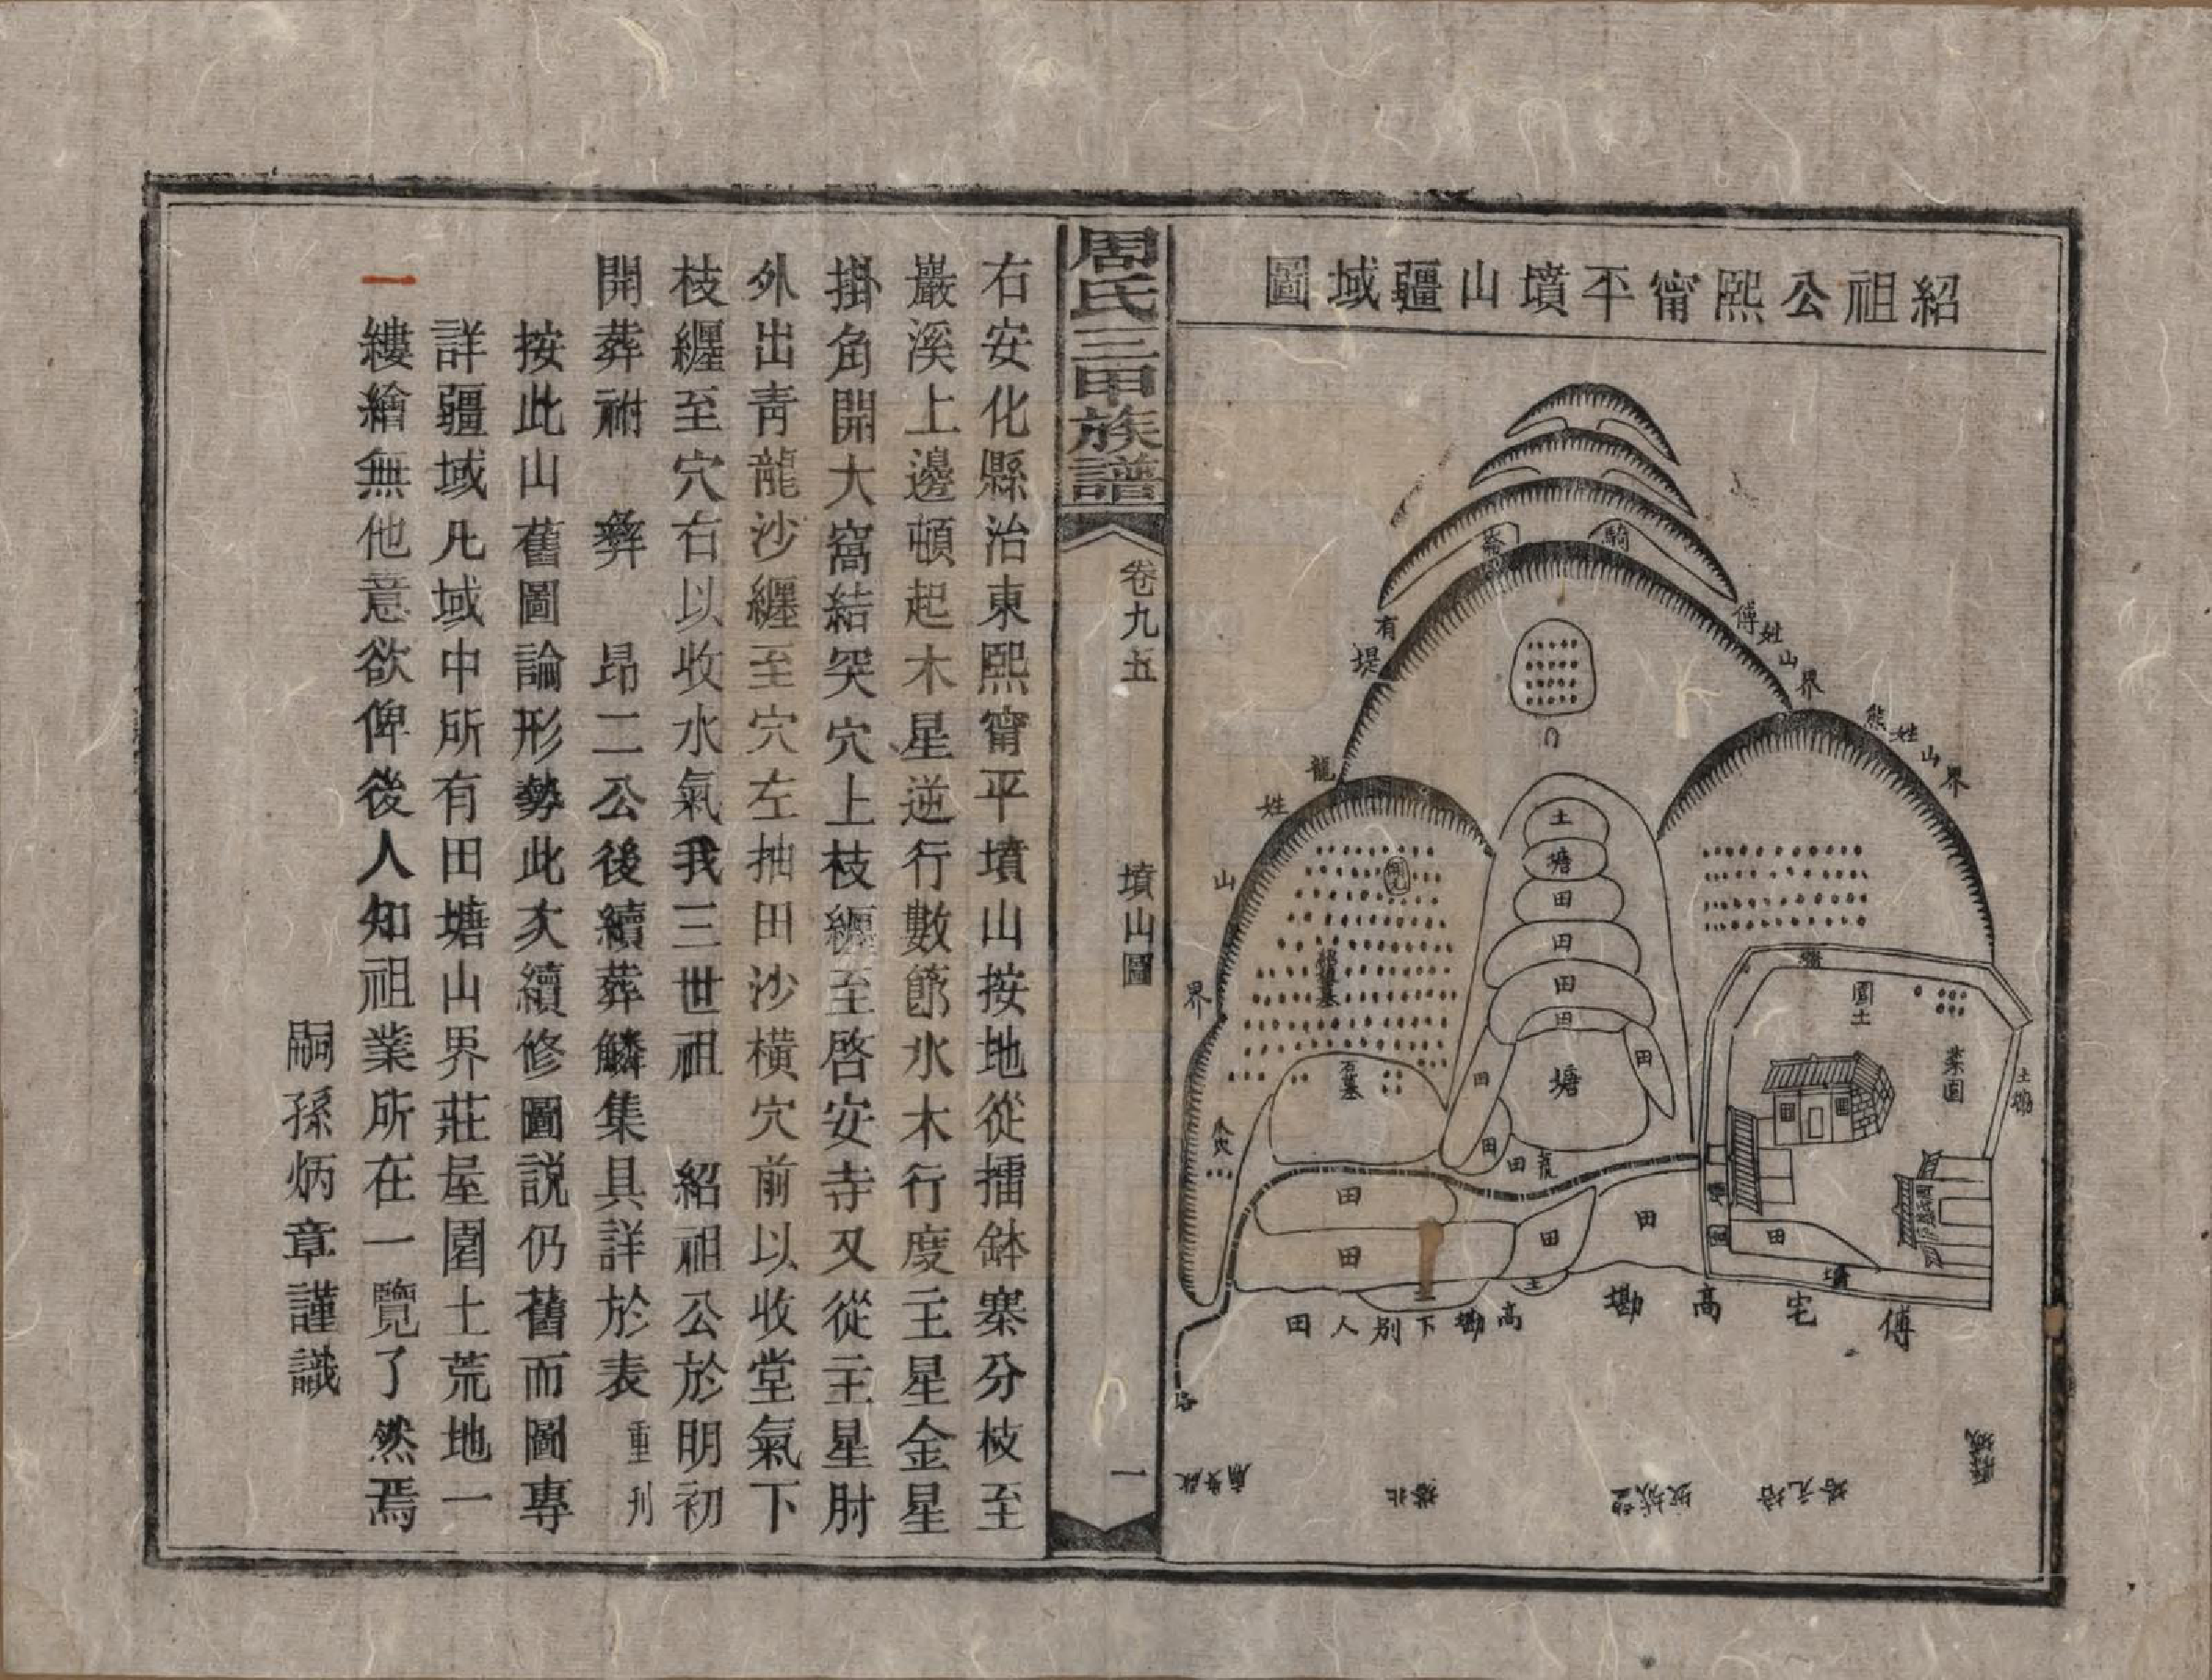 紹祖公熙甯平墳山疆域圖
有堤
龍姓山界
傅姓山界
熊姓山界
土
塘
田
田
田
田
塘
田
田
田
田
田
田
田
田
田
土
園土
菜園
傅宅高勘
高勘下別人田
路
周氏三甲族譜
卷九五
墳山圖
一
右安化縣治東熙甯平墳山按地從擂鉢寨分枝至
巖溪上邊頓起木星逆行數節水木行度主星金星
掛角開大窩結突穴上枝纏至啓安寺又從主星肘
外出青龍沙纏至穴左抽田沙橫穴前以收堂氣下
枝纏至穴右以收水氣我三世祖 紹祖公於明初
開葬祔 彜 昂二公後續葬鱗集具詳於表 重刊
按此山舊圖論形勢此次續修圖說仍舊而圖專
詳疆域凡域中所有田塘山界莊屋園土荒地一
一縷繪無他意欲俾後人知祖業所在一覽了然焉
嗣孫炳章謹識